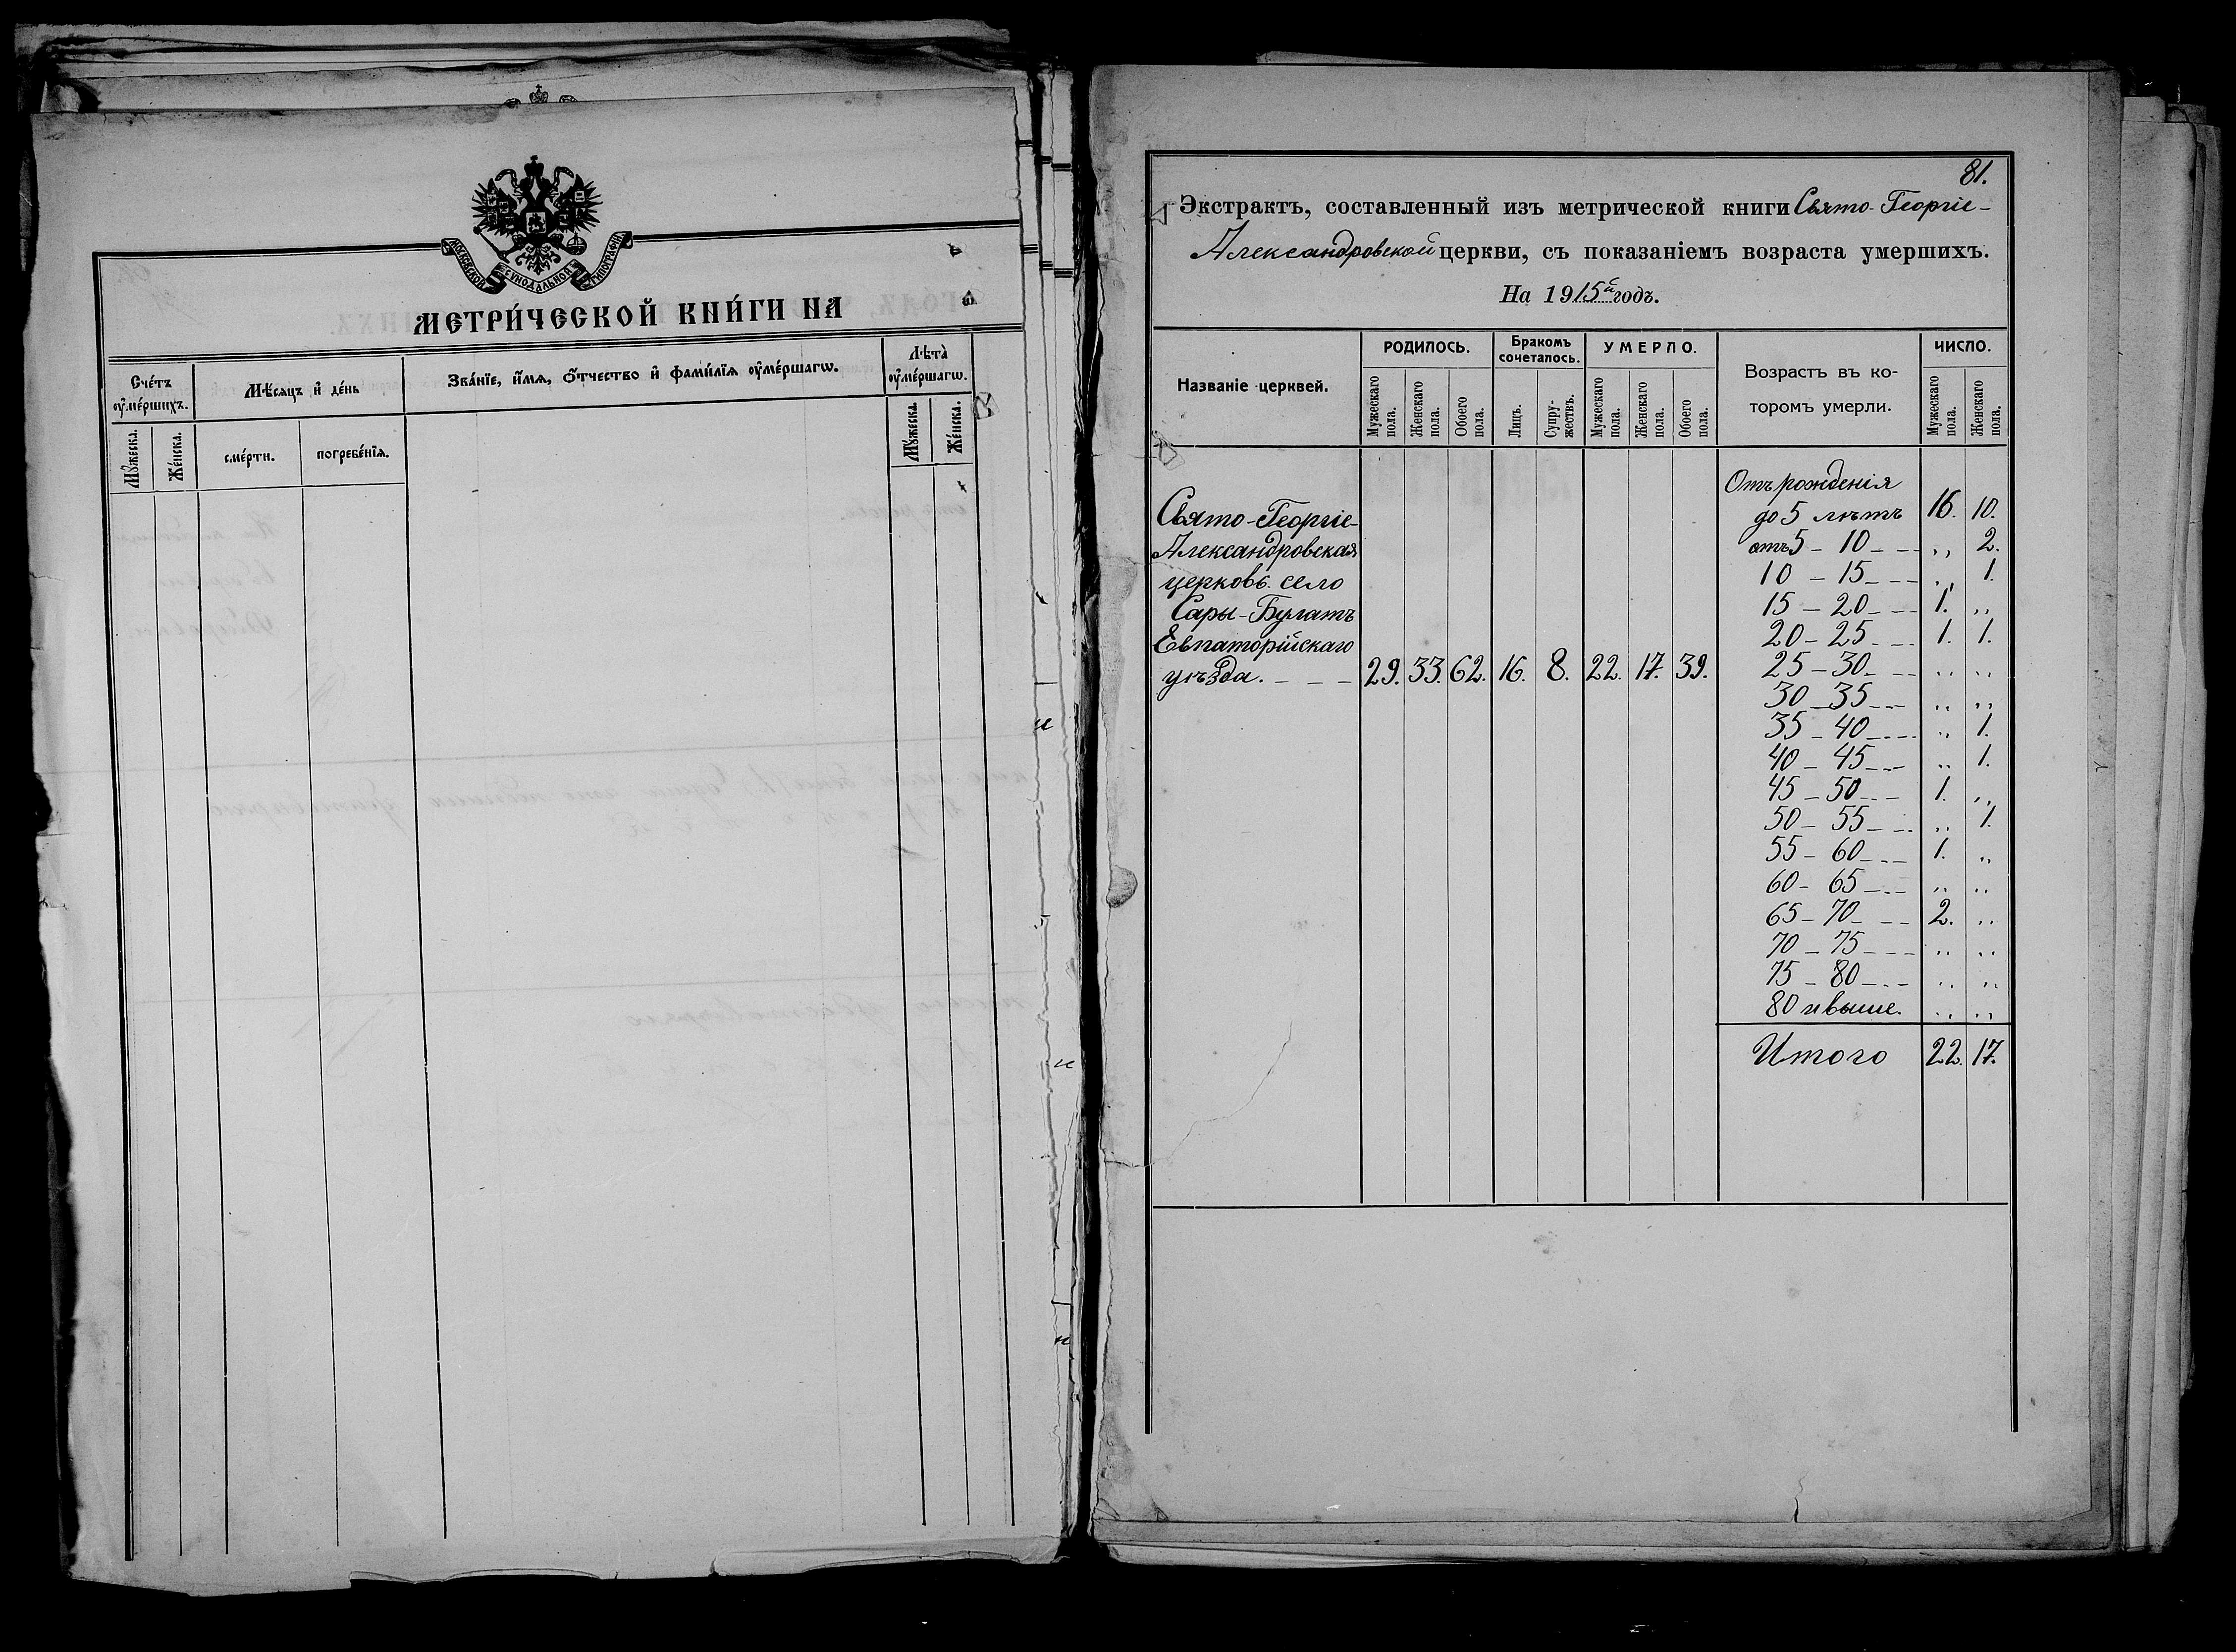 МОСКОВСКОЙ СѴНОДАЛЬНОЙ ТИПОГРАФІИ
МЕТРИ́ЧЕСКОЙ КНИ́ГИ НА
Сче́тъ ᲂу҆ме́ршихъ.
Мѣ́сяцъ и҆ де́нь
Зва́нїе, и҆́мѧ, ѻ҆́тчество и҆ фами́лїѧ ᲂу҆ме́ршагѡ.
Лѣ́та ᲂу҆ме́ршагѡ.
Мꙋ́жеска.
Же́нска.
сме́рти.
погребе́нїѧ.
Мꙋ́жеска.
Же́нска.
81.
Экстрактъ, составленный изъ метрической книги Свято-Георгіе-
Александровской церкви, съ показаніемъ возраста умершихъ.
На 1915й годъ.
Названіе церквей.
РОДИЛОСЬ.
Бракомъ сочеталось.
УМЕРЛО.
Возрастъ въ ко-
торомъ умерли.
ЧИСЛО.
Мужескаго пола.
Женскаго пола.
Обоего пола.
Лицъ.
Супру-
жествъ.
Мужескаго пола.
Женскаго пола.
Обоего пола.
Мужескаго пола.
Женскаго пола.
Свято-Георгіе-
Александровская
церковь село
Сары-Булатъ
Евпаторійскаго
уѣзда. - - - 29. 33. 62. 16. 8. 22. 17. 39.
Отъ рожденія
до 5 лѣтъ 16. 10.
отъ 5 - 10 - - - „ 2.
10 - 15 - - - „ 1.
15 - 20 - - - 1. „
20 - 25 - - - 1. 1.
25 - 30 - - - „ „
30 - 35 - - - „ „
35 - 40 - - - „ 1.
40 - 45 - - - „ 1.
45 - 50 - - - 1. „
50 - 55 - - - „ 1.
55 - 60 - - - 1. „
60 - 65 - - - „ „
65 - 70 - - - 2. „
70 - 75 - - - „ „
75 - 80 - - - „ „
80 и выше. „ „
Итого 22. 17.